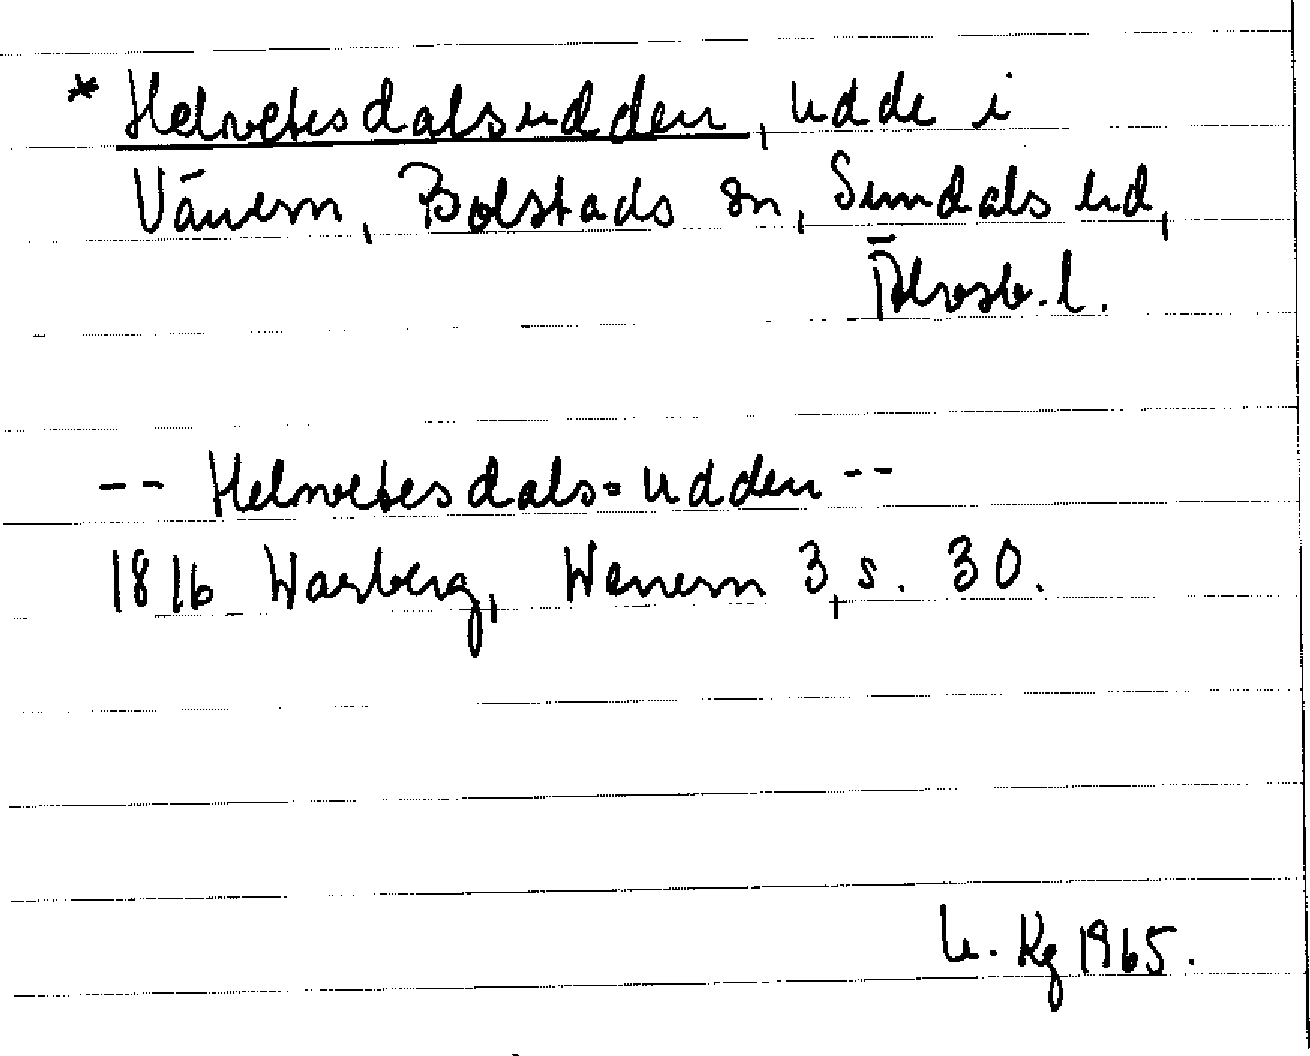 * Helvetesdalsudden, udde i
Vänern, Bolstads sn, Sundals hd,
Älvsb. l.
-- Helvetesdals-udden --
1816 Warberg, Wenern 3, s. 30.
U. Kg 1965.